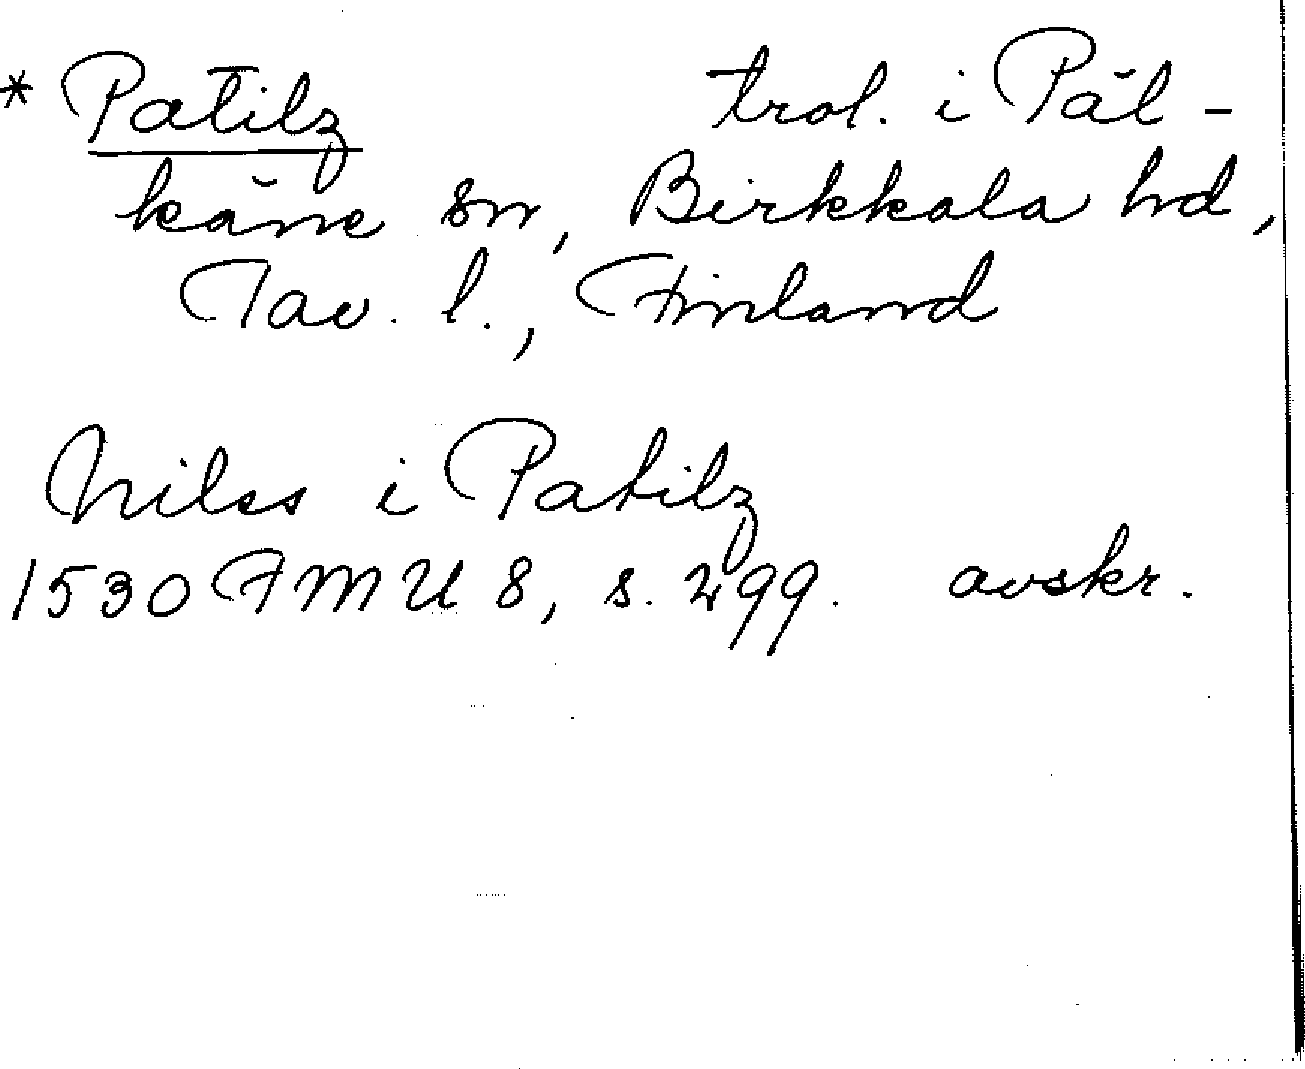 * Patilz trol. i Päl-
käne sn, Birkkala hd,
Tav. l., Finland
Nilss i Patilz
1530 FMU 8, s. 299. avskr.